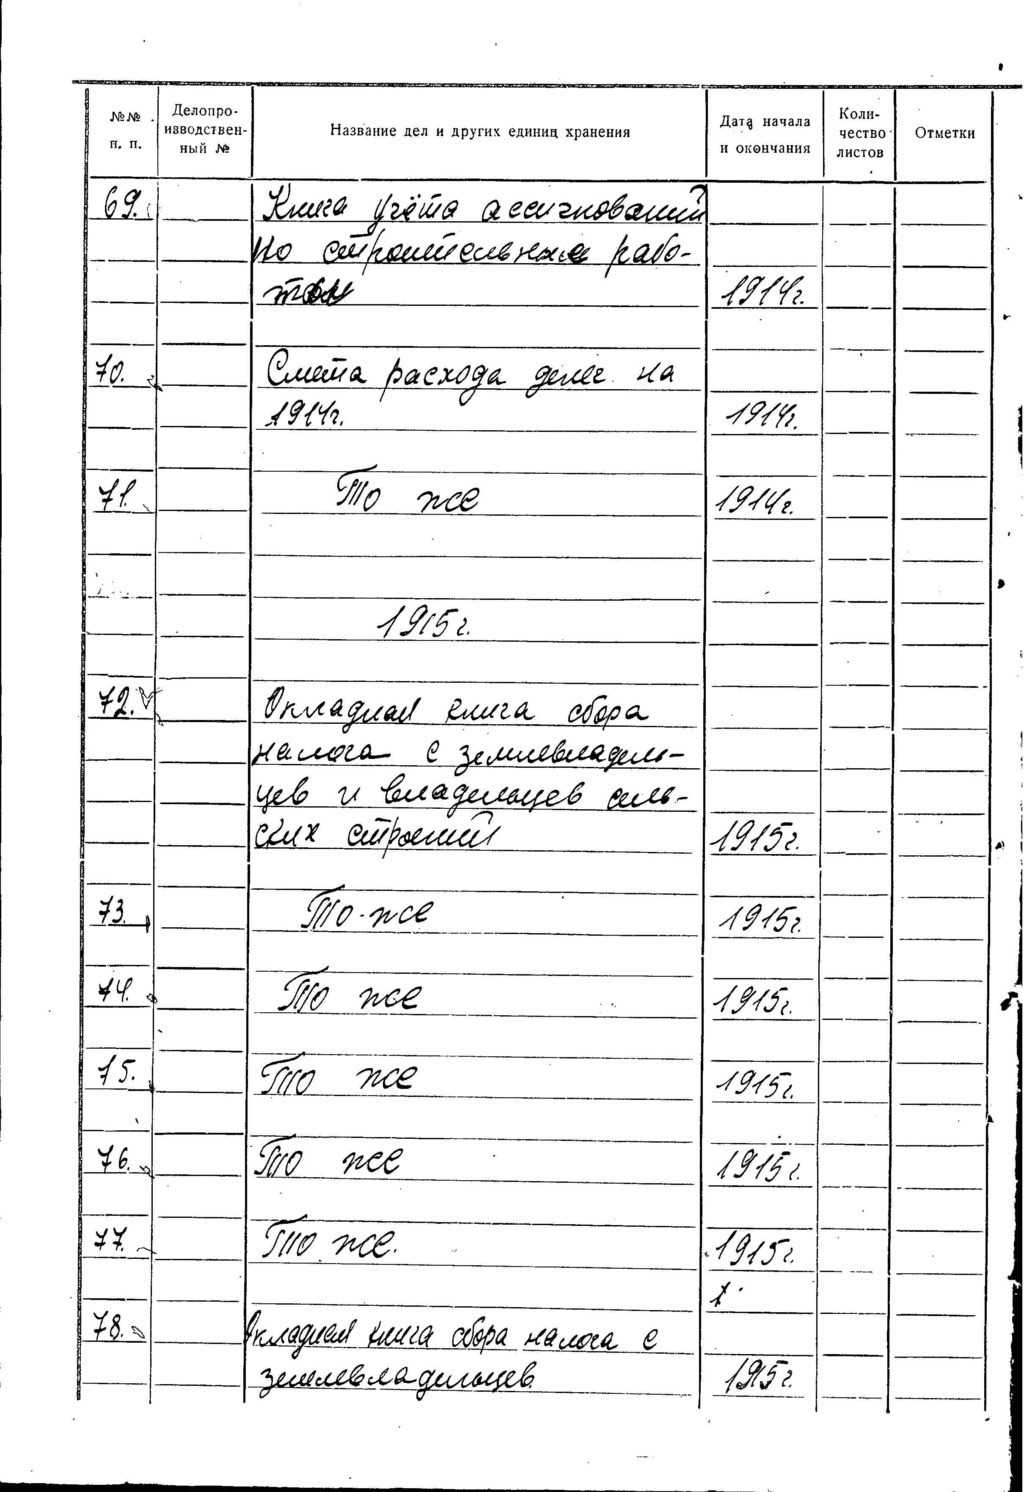 №№ п. п. Делопроизводственный № Название дел и других единиц хранения Дата начала и окончания Количество листов Отметки
69. Книга учёта ассигнований
по строительным рабо-
там 1914г.
70. Смета расхода денег на
1914г. 1914г.
71. То же 1914г.
1915г.
72. Окладная книга сбора
налога с землевладель-
цев и владельцев сель-
ских строений 1915г.
73. То же 1915г.
74. То же 1915г.
75. То же 1915г.
76. То же 1915г.
77. То же. 1915г.
78. Окладная книга сбора налога с
землевладельцев 1915г.